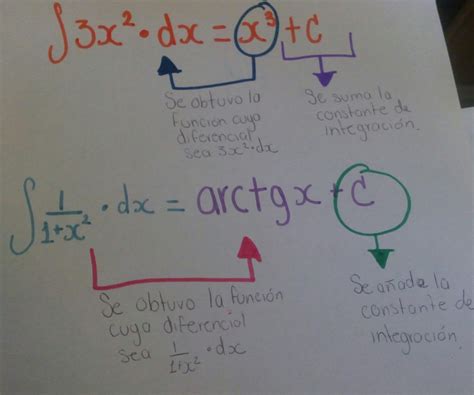 ∫3x²·dx = x³ + C
Se obtuvo la
función cuya
diferencial
sea 3x²·dx
Se suma la
constante de
integración.
∫ 1/1+x² · dx = arctgx + C
Se obtuvo la función
cuya diferencial
sea 1/1+x² · dx
Se añade la
constante de
integración.